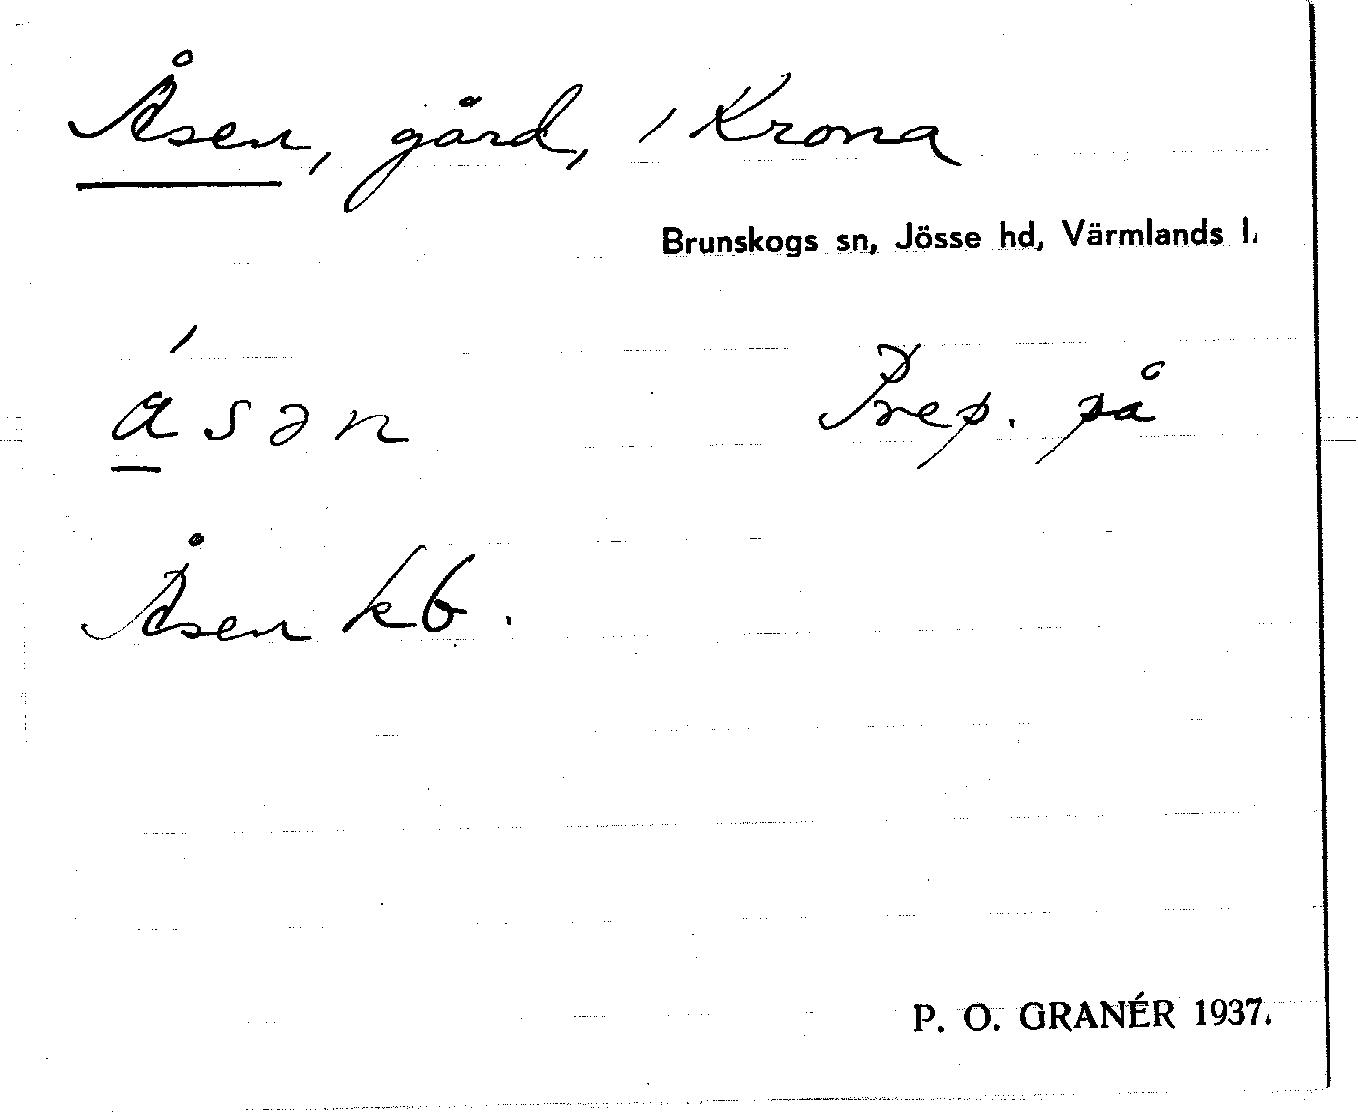 Åsen, gård, i Krona
Brunskogs sn, Jösse hd, Värmlands l.
á̱sən Prep. på
Åsen kb.
P. O. GRANÉR 1937.